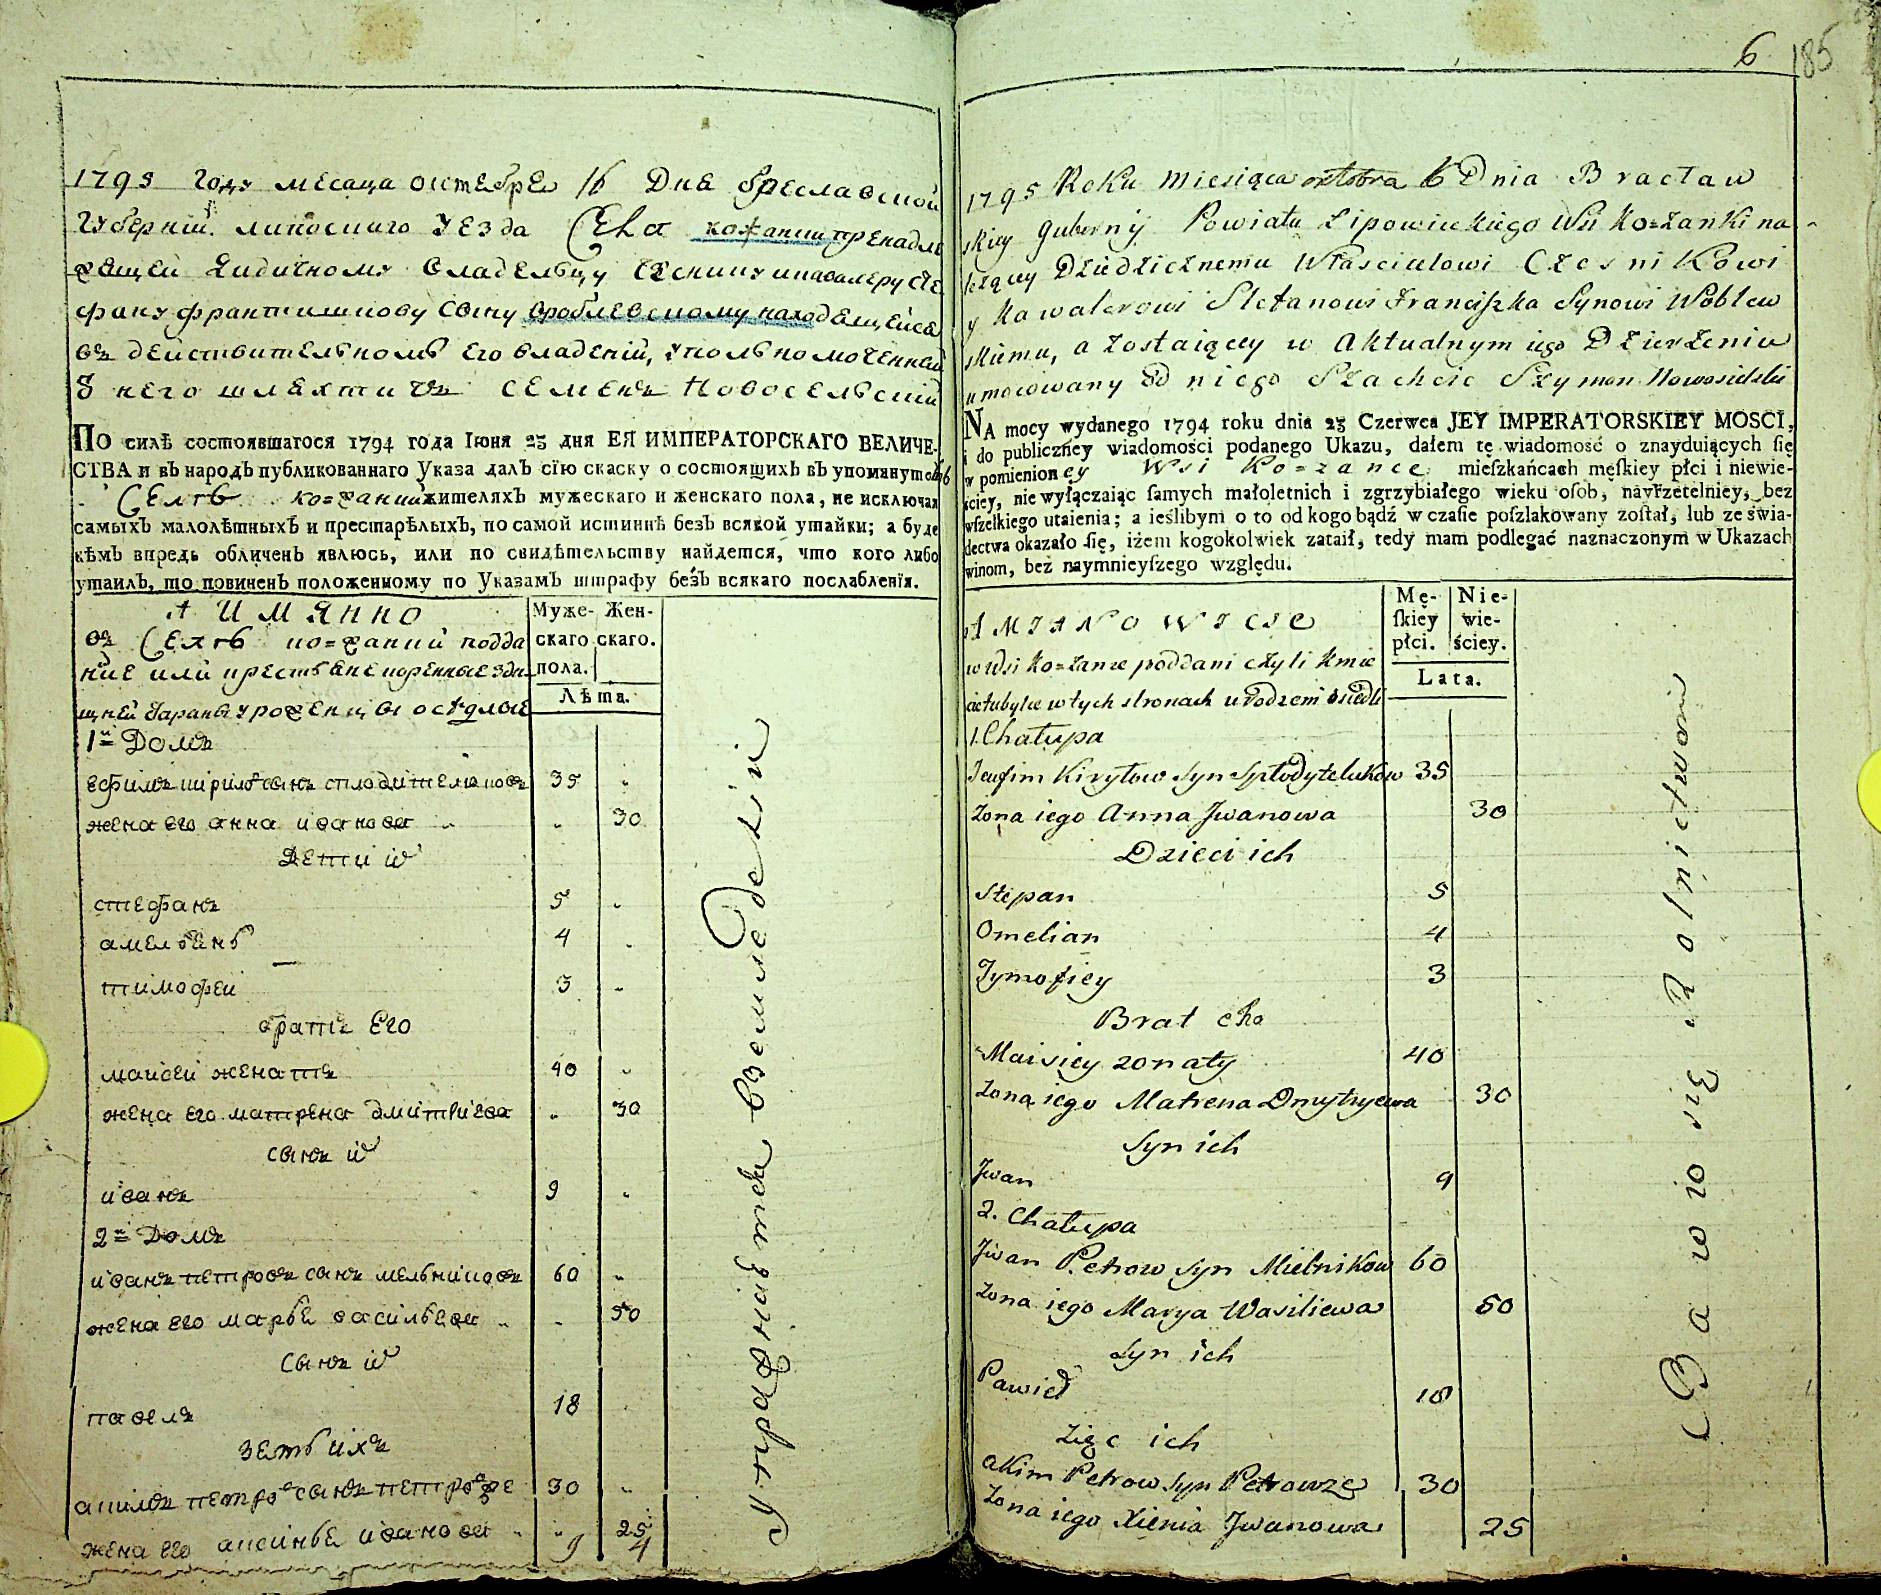 1795 году месаца октебре 16 Дне бреславской
Губернїи липоского уезда Села кожанки пренадле
жащей Дидичному Владельцу Чеснику и кавалеру Сте
фану францишкову Сыну вроблевскому находещейсе
въ действительномъ его владении, уполномоченный
ѿ него шляхтичъ Семенъ Новоселский
По силѣ состоявшагося 1794 года Іюня 23 дня ЕЯ ИМПЕРАТОРСКАГО ВЕЛИЧЕ-
СТВА и въ народъ публикованнаго Указа далъ сїю скаску о состоящихъ въ упомянутомъ
Селѣ кожанки жителяхъ мужескаго и женскаго пола, не исключая
самыхъ малолѣтныхъ и престарѣлыхъ, по самой истиннѣ безъ всякой утайки; а буде
кѣмъ впредь обличенъ явлюсь, или по свидѣтельству найдется, что кого либо
утаилъ, то повиненъ положенному по Указамъ штрафу безъ всякаго послабленїя.
А Имянно
въ Селѣ кожанки подда
ние или крестьяне коренные зде
щней уроженцы оседлые
Муже-
скаго
пола.
Жен-
скаго.
Лѣта.
1й Домъ
ефимъ кириловъ сынъ сплодителюковъ 35
жена его анна иванова 30
Дети их
стефанъ 5
амельенъ 4
тимофей 3
братъ Его
маисей женатъ 40
жена его матрена дмитриева 30
сынъ их
иванъ 9
2й Домъ
иванъ петровъ сынъ мельниковъ 60
жена его марья васильева 50
сынъ их
павелъ 18
зеть ихъ
акимъ петровъ сынъ 30
жена его аксинье иванова 25
9 4
упражнаютса в земледелии
6 185
1795 Roku Miesiąca oktobra 6 Dnia Bracław
skiey Guberny Powiatu Lipowieckiego Wsi Kożanki na
leżącey Dziedzicznemu Właścicielowi Cześnikowi
y Kawalerowi Stefanowi Franciszka Synowi Woblew
skiemu, a zostaiącey w Aktualnym iego Dzierżeniu
umocowany od niego Szlachcic Szymon Nowosielski
NA mocy wydanego 1794 roku dnia 23 Czerwca JEY IMPERATORSKIEY MOSCI,
i do publiczney wiadomości podanego Ukazu, dałem tę wiadomość o znayduiących się
w pomienioney Wsi Kożance mieſzkańcach męſkiey płci i niewie-
ściey, nie wyłączaiąc ſamych małoletnich i zgrzybiałego wieku oſob, nayrzetelniey, bez
wſzelkiego utaienia; a ieślibym o to od kogo bądź w czaſie poſzlakowany zoſtał, lub ze świa-
dectwa okazało ſię, iżem kogokolwiek zataił, tedy mam podlegać naznaczonym w Ukazach
winom, bez naymnieyſzego względu.
A MIANOWICIE
w Wsi Kożance poddani czyli kmie
cie tubylce w tych stronach urodzeni osiedli
Mę-
ſkiey
płci.
Nie-
wie-
ściey.
Lata.
1. Chałupa
Jeufim Kiryłow Syn Spłodytelukow 35
Żona iego Anna Jwanowa 30
Dzieci ich
Stepan 5
Omelian 4
Tymofiey 3
Brat eho
Maisiey żonaty 40
Żona iego Matrena Dmytryewa 30
Syn ich
Jwan 9
2. Chałupa
Jwan Petrow Syn Mielnikow 60
Żona iego Marya Wasiliewa 50
Syn ich
Paweł 18
Zięc ich
Akim Petrow Syn 30
Żona iego Xienia Jwanowa 25
Bawią się Rolnictwem